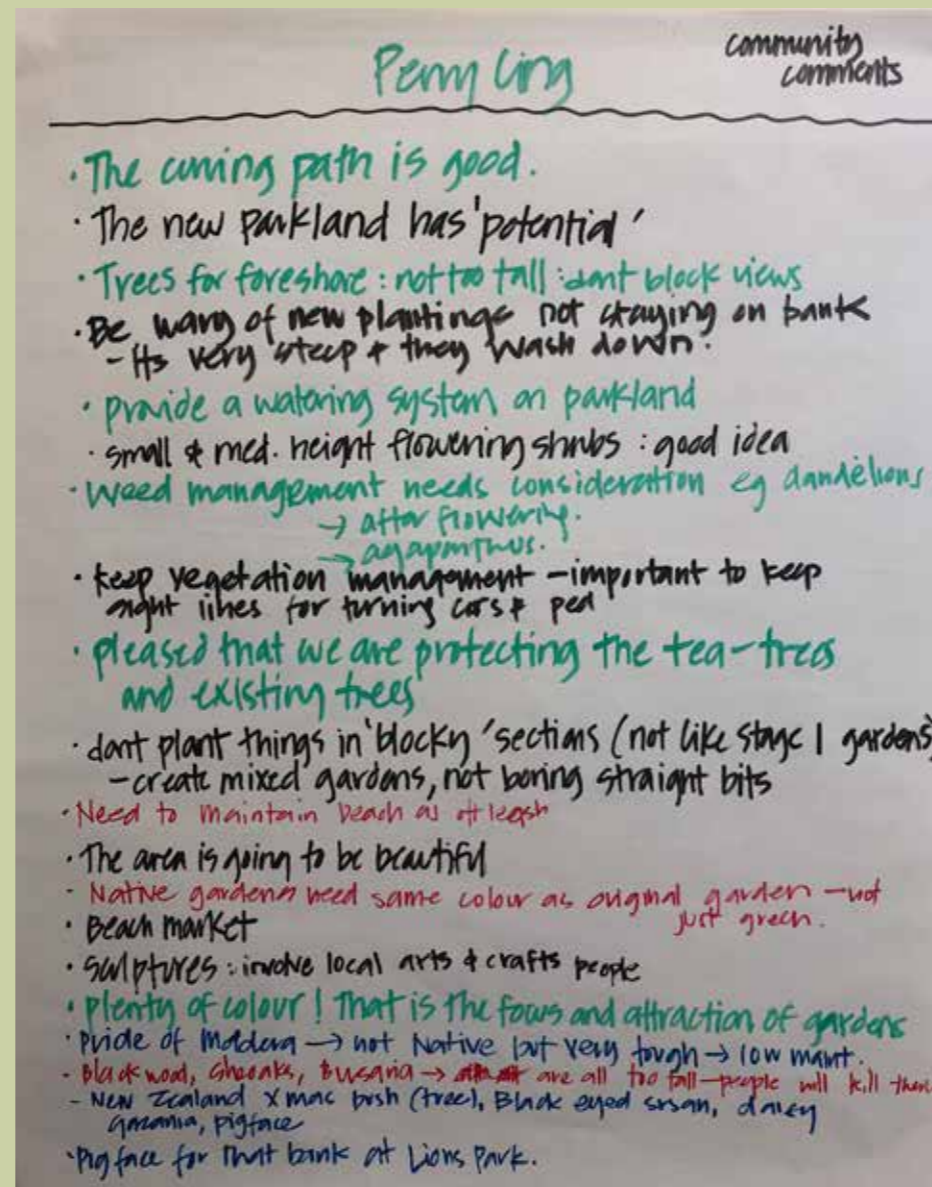 Penny Ling
community
comments
· The curving path is good.
· The new parkland has 'potential'
· Trees for foreshore : not too tall : dont block views
· Be wary of new plantings not staying on bank
- Its very steep & they wash down.
· provide a watering system on parkland
· small & med. height flowering shrubs : good idea
· weed management needs consideration eg dandelions
→ after flowering.
→ agapanthus.
· keep vegetation management - important to keep
sight lines for turning cars & ped
· pleased that we are protecting the tea-trees
and existing trees
· dont plant things in 'blocky' sections (not like stage 1 gardens)
- create mixed gardens, not boring straight bits
· Need to maintain beach as off leash
· The area is going to be beautiful
- Native gardens need same colour as original garden - not
just green.
· Beach market
· sculptures : involve local arts & crafts people
· plenty of colour! That is the focus and attraction of gardens
· Pride of Madera → not Native but very tough → low maint.
- Blackwood, Sheoaks, Bursaria → are all too tall - people will kill them
- New Zealand Xmas bush (tree), Black eyed susan, daisy
Gazania, pigface
· Pigface for that bank at Lions Park.